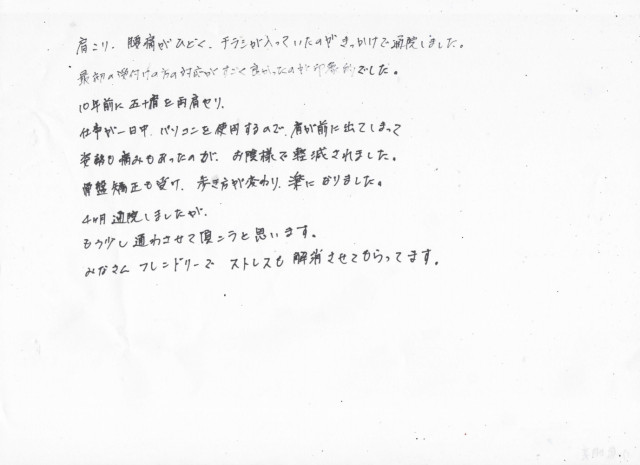 肩こり、腰痛がひどく、チラシが入っていたのがきっかけで通院しました。
最初の受付けの方の対応がすごく良かったのが印象的でした。
10年前に五十肩を両肩やり、
仕事が一日中、パソコンを使用するので、肩が前に出てしまって
姿勢も痛みもあったのが、お陰様で軽減されました。
骨盤矯正も受け、歩き方が変わり、楽になりました。
4ヶ月通院しましたが、
もう少し通わさせて頂こうと思います。
みなさんフレンドリーで ストレスも解消させてもらってます。